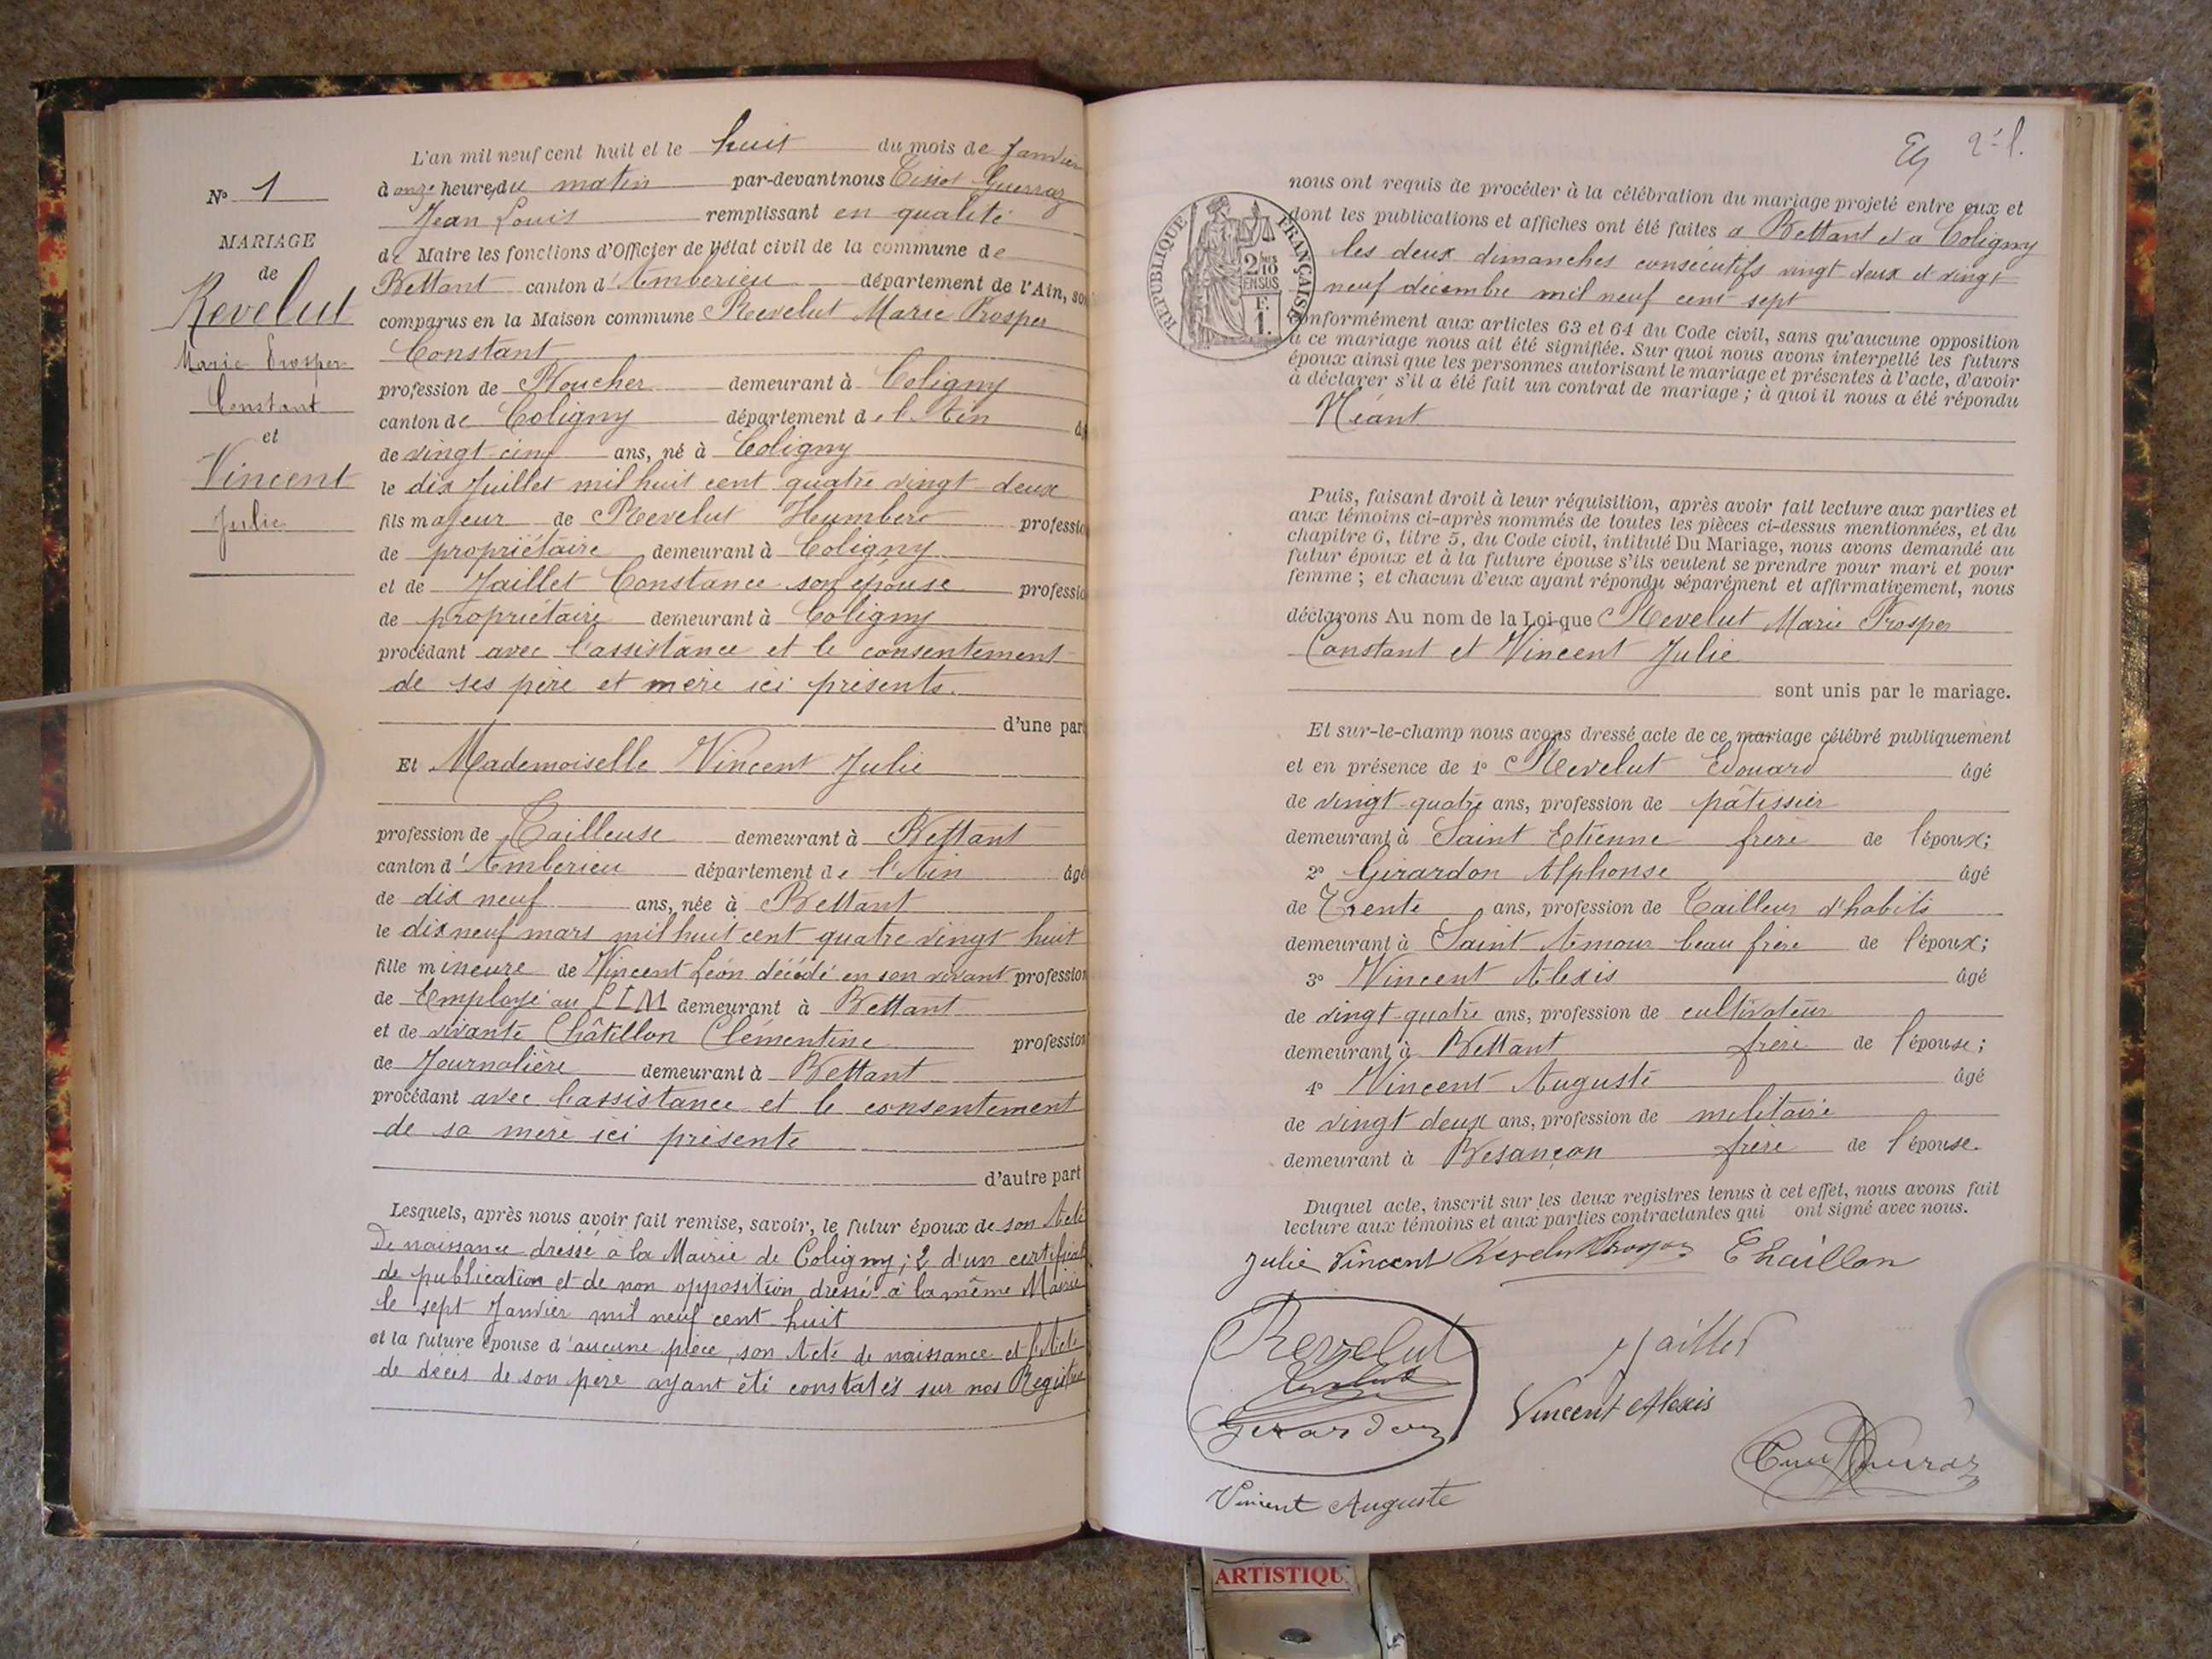 L'an mil neuf cent huit et le huit du mois de Janvier
N° 1
à onze heures du matin par-devant nous Tissot Guerraz
Jean Louis remplissant en qualité
MARIAGE
de Maire les fonctions d'Officier de l'état civil de la commune de
de
Bettant canton d'Amberieu département de l'Ain, so
Revelut
comparus en la Maison commune Revelut Marie Prosper
Marie Prosper
Constant
Constant
profession de Boucher demeurant à Coligny
et
canton de Coligny département de l'Ain âg
Vincent
de vingt cinq ans, né à Coligny
Julie
le dix Juillet mil huit cent quatre vingt deux
fils majeur de Revelut Humbert professio
de propriétaire demeurant à Coligny
et de Jaillet Constance son épouse professio
de propriétaire demeurant à Coligny
procédant avec l'assistance et le consentement
de ses père et mère ici présents.
d'une part
Et Mademoiselle Vincent Julie
profession de Tailleuse demeurant à Bettant
canton d'Amberieu département de l'Ain âgé
de dix neuf ans, née à Bettant
le dix neuf mars mil huit cent quatre vingt huit
fille mineure de Vincent Léon décédé en son vivant profession
de Employé au PLM demeurant à Bettant
et de vivante Châtillon Clémentine profession
de Journalière demeurant à Bettant
procédant avec l'assistance et le consentement
de sa mère ici présente
d'autre part
Lesquels, après nous avoir fait remise, savoir, le futur époux de son Acte
De naissance dressé à la Mairie de Coligny; 2 d'un certificat
de publication et de non opposition dressé à la même Mairie
le sept Janvier mil neuf cent huit
et la future épouse d'aucune pièce, son Acte de naissance et l'Acte
de décès de son père ayant été constatés sur nos Registres
2è f.
nous ont requis de procéder à la célébration du mariage projeté entre eux et
dont les publications et affiches ont été faites a Bettant et a Coligny
les deux dimanches consécutifs vingt deux et vingt
neuf décembre mil neuf cent sept
RÉPUBLIQUE FRANÇAISE
2/10
EN SUS
F.
1.
conformément aux articles 63 et 64 du Code civil, sans qu'aucune opposition
à ce mariage nous ait été signifiée. Sur quoi nous avons interpellé les futurs
époux ainsi que les personnes autorisant le mariage et présentes à l'acte, d'avoir
à déclarer s'il a été fait un contrat de mariage; à quoi il nous a été répondu
Néant
Puis, faisant droit à leur réquisition, après avoir fait lecture aux parties et
aux témoins ci-après nommés de toutes les pièces ci-dessus mentionnées, et du
chapitre 6, titre 5, du Code civil, intitulé Du Mariage, nous avons demandé au
futur époux et à la future épouse s'ils veulent se prendre pour mari et pour
femme; et chacun d'eux ayant répondu séparément et affirmativement, nous
déclarons Au nom de la Loi que Revelut Marie Prosper
Constant et Vincent Julie
sont unis par le mariage.
Et sur-le-champ nous avons dressé acte de ce mariage célébré publiquement
et en présence de 1° Revelut Edouard âgé
de vingt-quatre ans, profession de pâtissier
demeurant à Saint Etienne frère de l'époux;
2° Girardon Alphonse âgé
de Trente ans, profession de Tailleur d'habits
demeurant à Saint Amour beau frère de l'époux;
3° Vincent Alexis âgé
de vingt-quatre ans, profession de cultivateur
demeurant à Bettant frère de l'épouse;
4° Vincent Auguste âgé
de vingt deux ans, profession de militaire
demeurant à Besançon frère de l'épouse.
Duquel acte, inscrit sur les deux registres tenus à cet effet, nous avons fait
lecture aux témoins et aux parties contractantes qui ont signé avec nous.
Julie Vincent Revelut Prosper Chaillon
Revelut
Jaillet
Girardon
Vincent Alexis
Vincent Auguste
ARTISTIQU